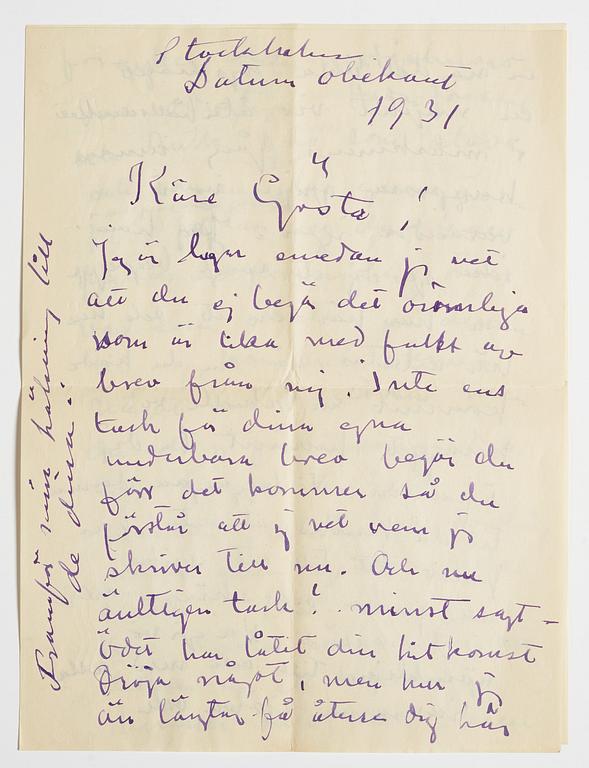 Stockholm
Datum obekant
1931
Käre Gösta!
Jag är lugn emedan jag vet
att du ej begär det orimliga
som är lika med fullt av
brev från mig. Inte ens
tack för dina egna
underbara brev begär du
förr det kommer så du
förstår att jag vet vem jag
skriver till nu. Och nu
äntligen tack! minst sagt –
ödet har låtit din hitkomst
dröja något, men hur jag
än längtar få återse dig här
Framför min hälsning till
de dina!